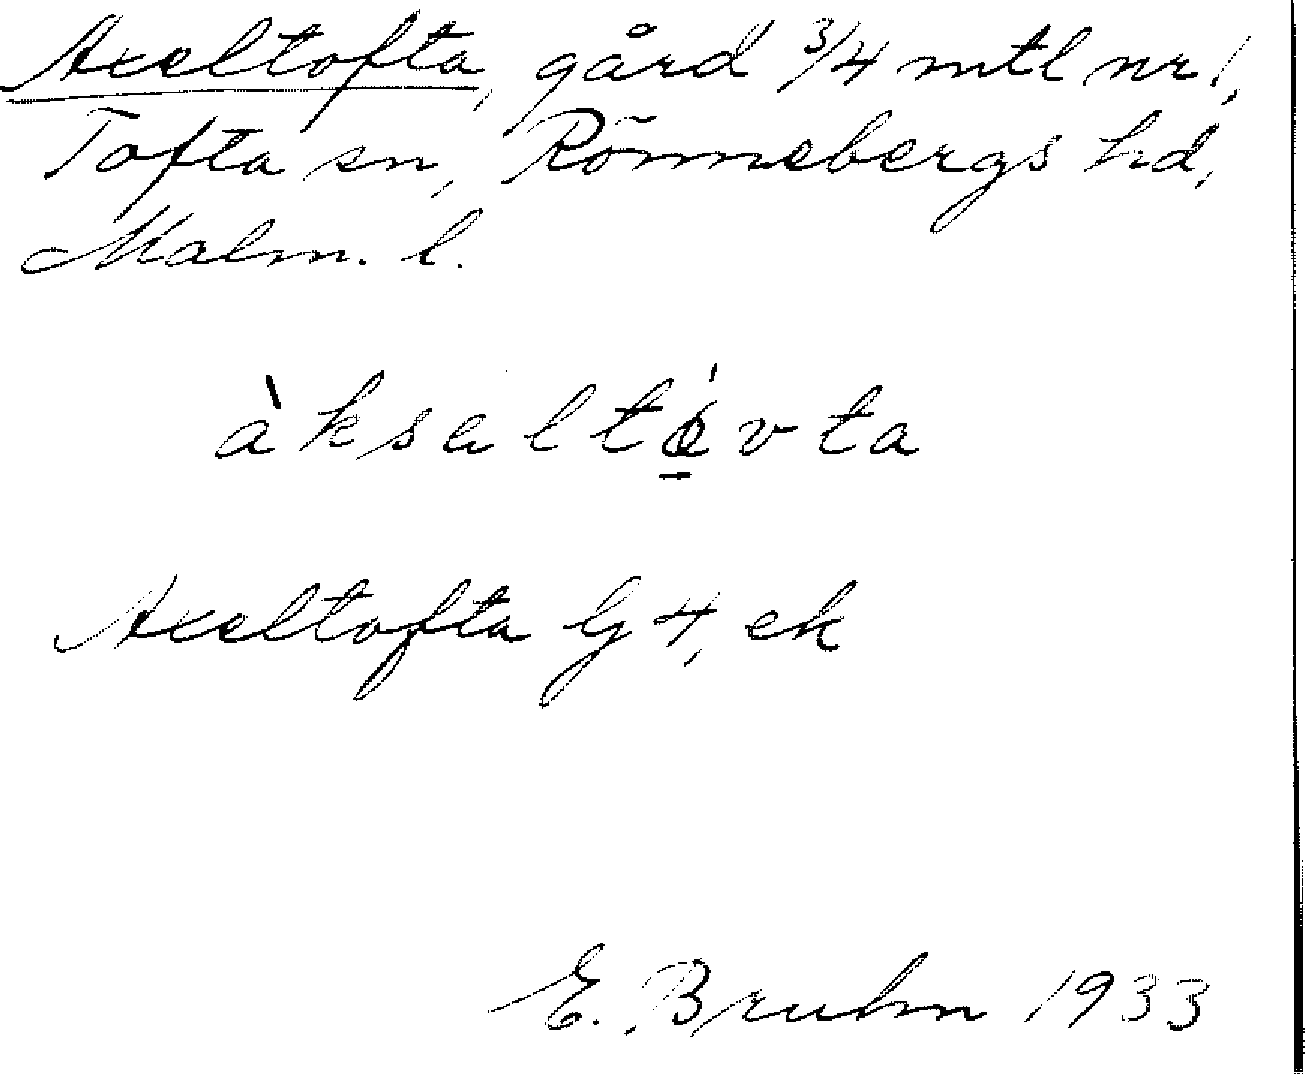 Axeltofta, gård 3/4 mtl nr 1,
Tofta sn, Rönnebergs hd,
Malm. l.
àksaltó̱vta
Axeltofta G 4, ek
E. Bruhn 1933